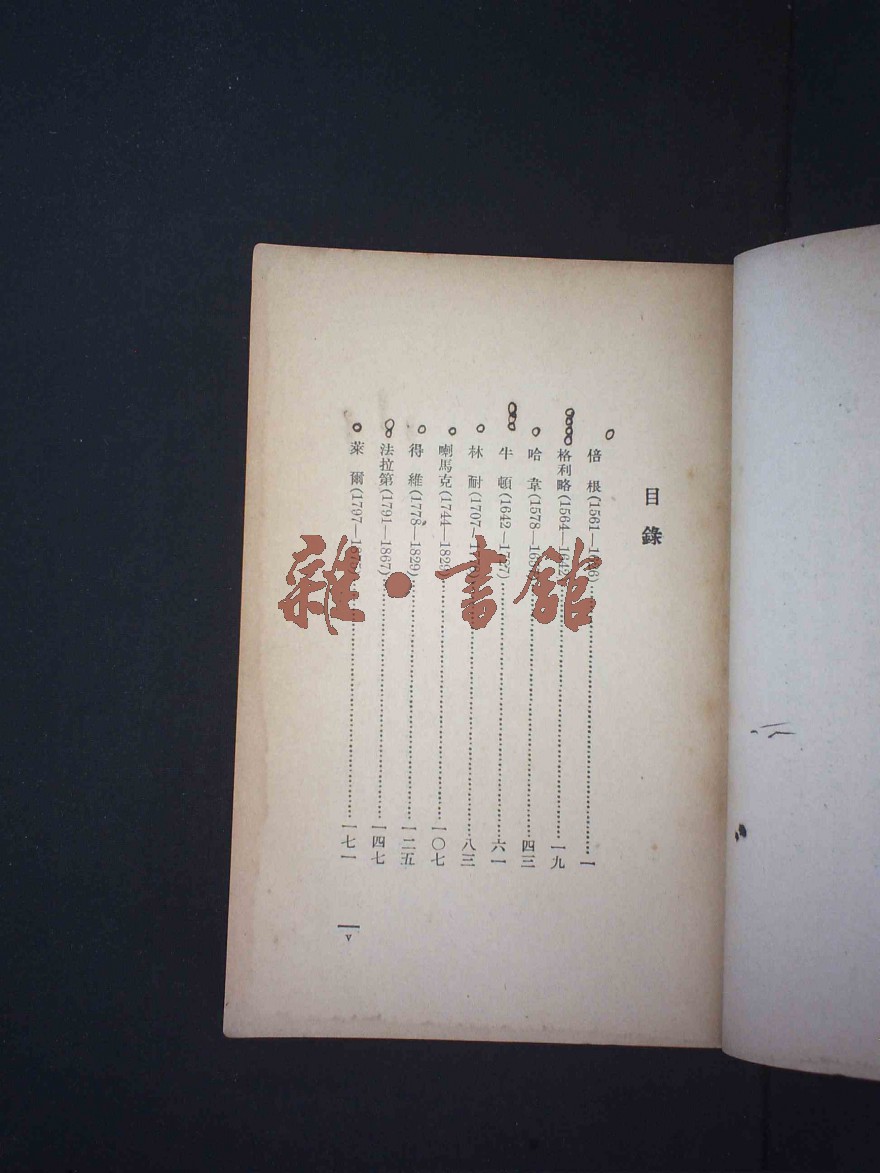 目錄
倍根(1561—1626)一
格利略(1564—1642)一九
哈韋(1578—16四三
牛頓(1642—1727)六一
林耐(1707—八三
喇馬克(1744—1829)一〇七
得維(1778—1829)一二五
法拉第(1791—1867)一四七
萊爾(1797—1875)一七一
v
雜·書館